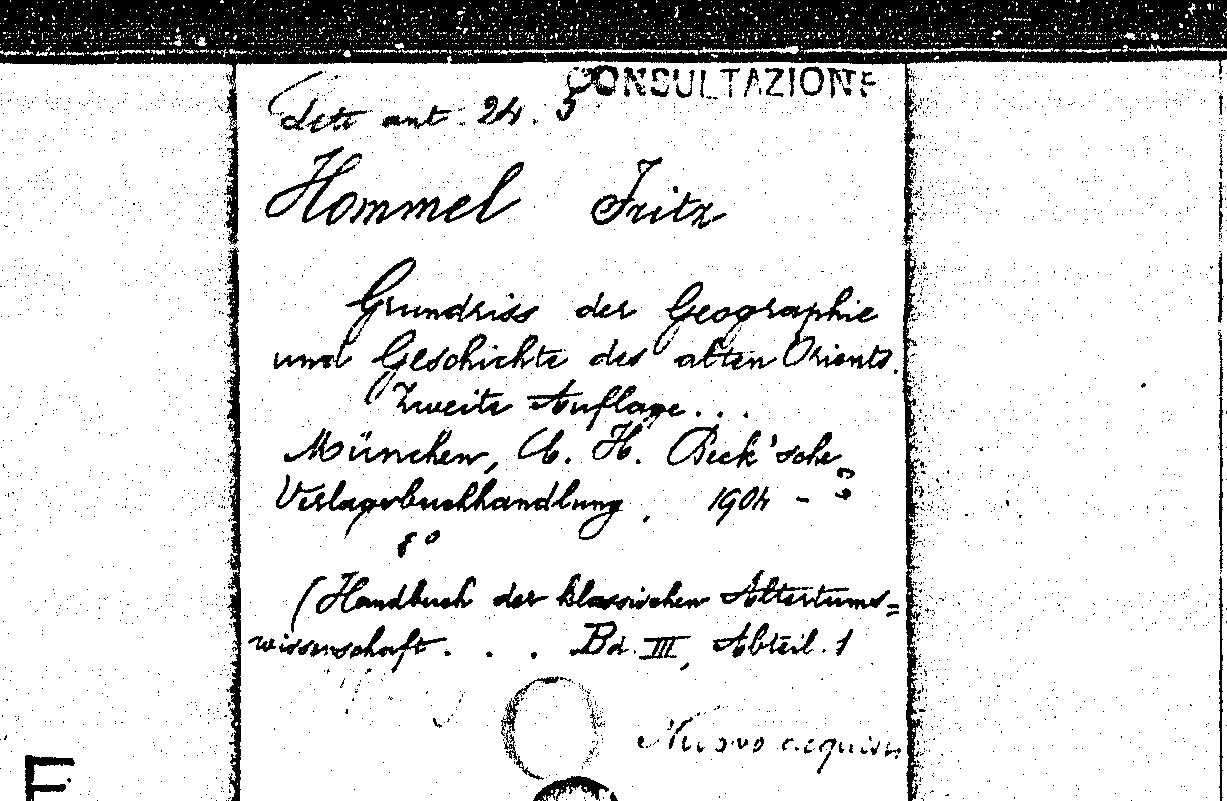 CONSULTAZIONE
Lett ant. 24. 5
Hommel Fritz
Grundriss der Geographie
und Geschichte des alten Orients.
Zweite Auflage...
München, C. H. Beck'sche
Verlagsbuchhandlung, 1904 -
8°
(Handbuch der klassischen Altertums=
wissenschaft . . . Bd. III, Abteil. 1
Nuovo acquisto
F